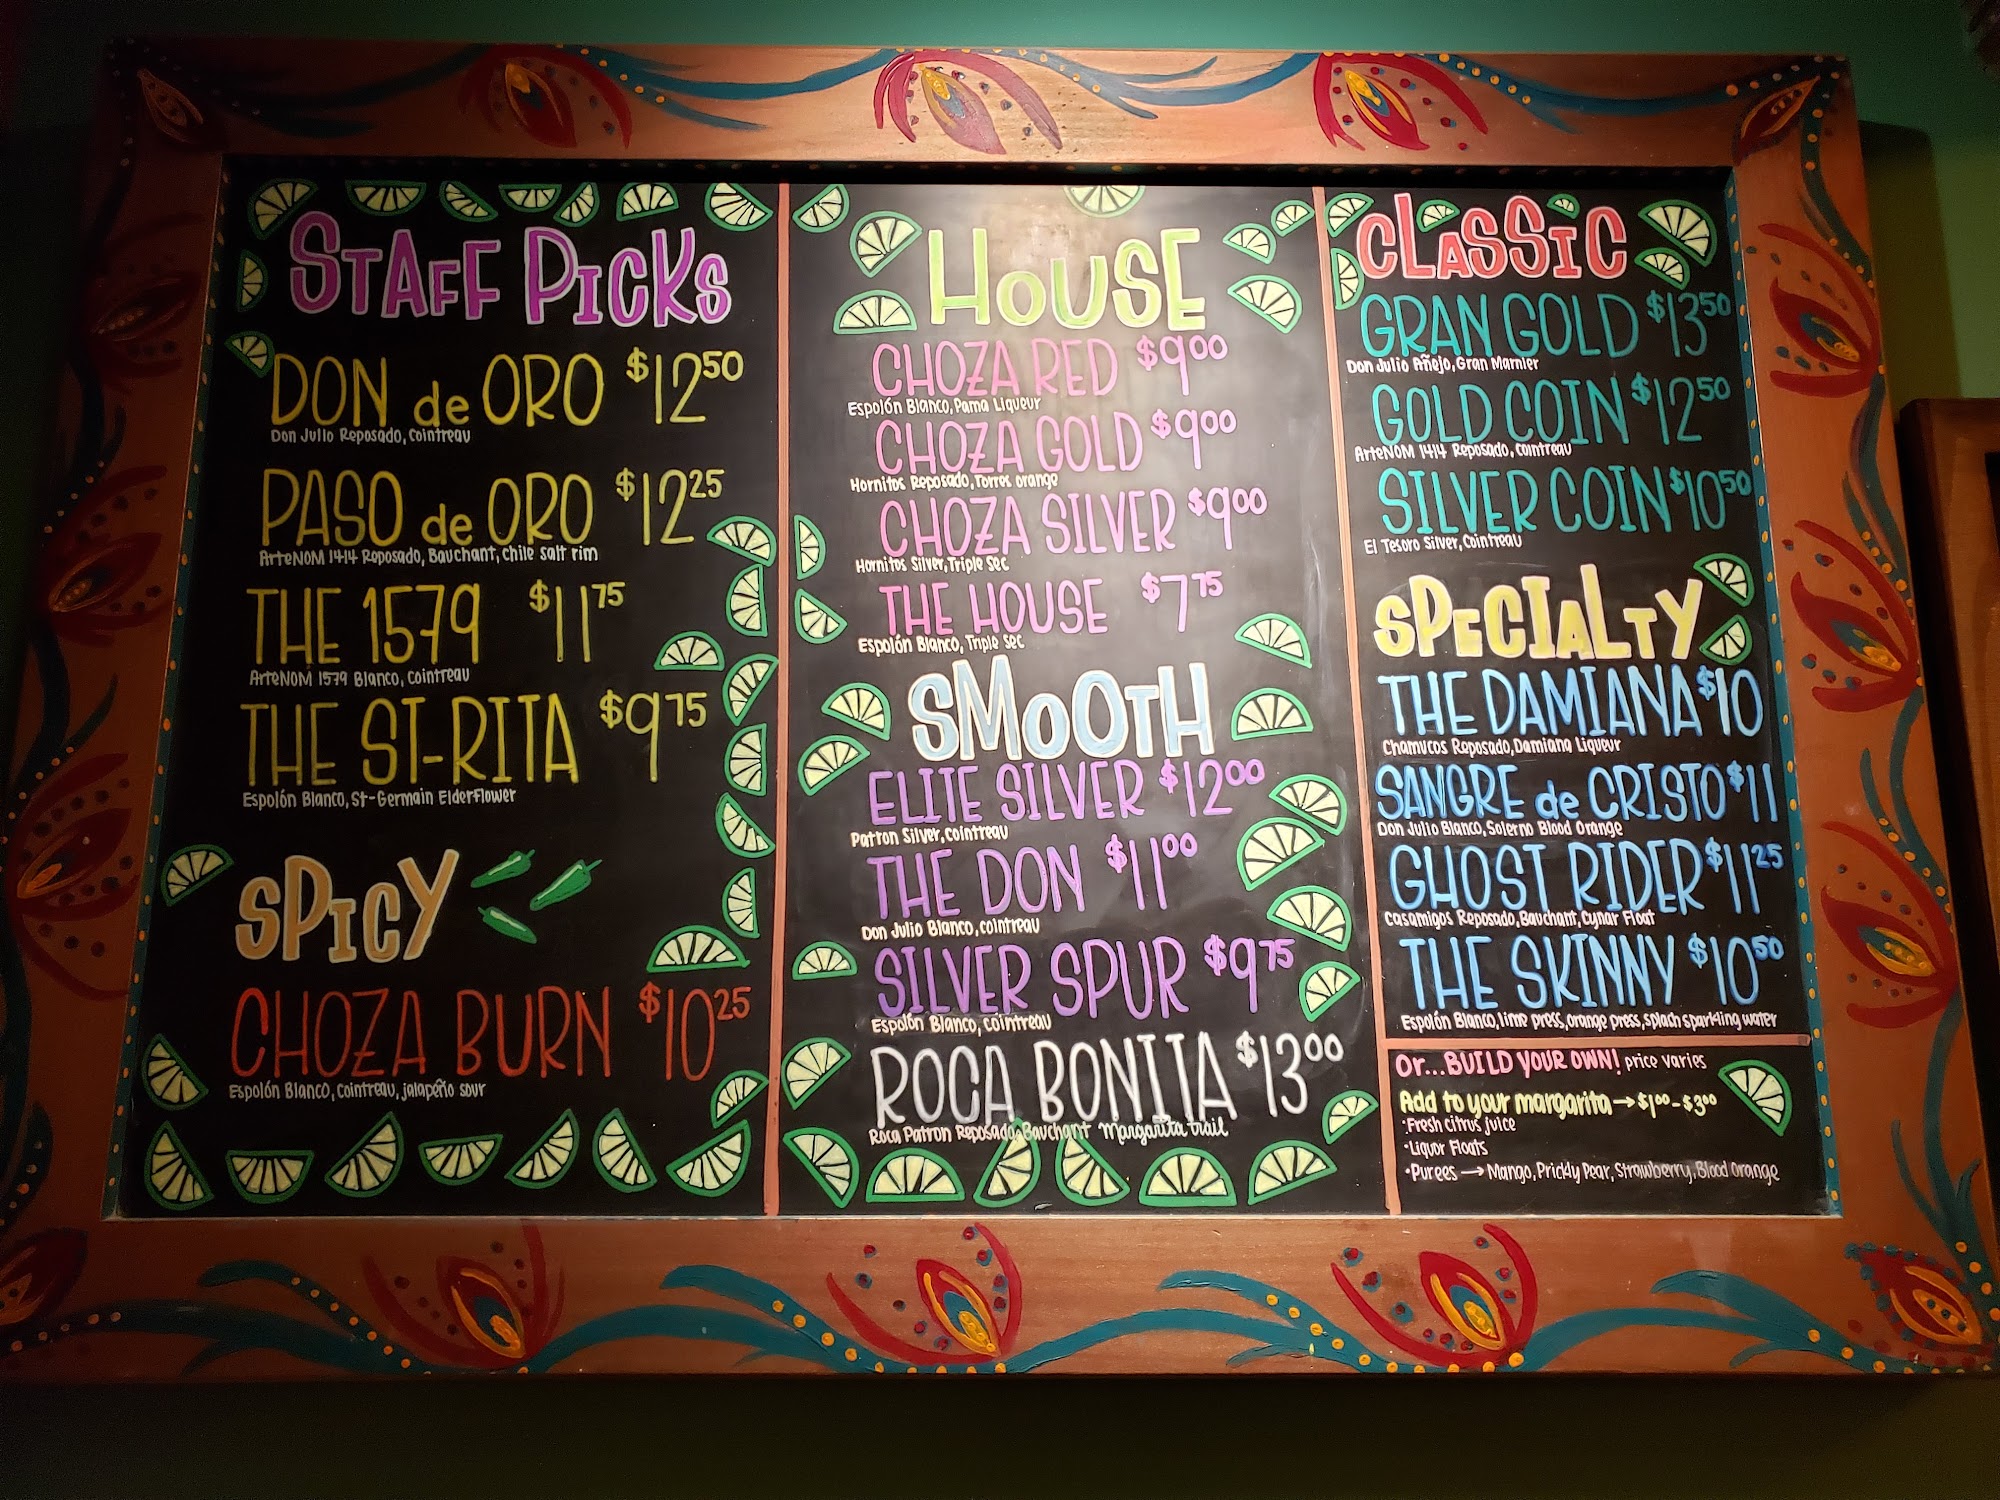 STAFF PICKS
DON de ORO $12.50
Don Julio Reposado, Cointreau
PASO de ORO $12.25
ArteNOM 1414 Reposado, Bauchant, chile salt rim
THE 1579 $11.75
ArteNOM 1579 Blanco, Cointreau
THE ST-RITA $9.75
Espolón Blanco, St-Germain Elderflower
SPICY
CHOZA BURN $10.25
Espolón Blanco, Cointreau, jalapeño sour
HOUSE
CHOZA RED $9.00
Espolón Blanco, Pama Liqueur
CHOZA GOLD $9.00
Hornitos Reposado, Torres orange
CHOZA SILVER $9.00
Hornitos Silver, Triple Sec
THE HOUSE $7.75
Espolón Blanco, Triple Sec
SMOOTH
ELITE SILVER $12.00
Patron Silver, Cointreau
THE DON $11.00
Don Julio Blanco, Cointreau
SILVER SPUR $9.75
Espolón Blanco, Cointreau
ROCA BONITA $13.00
Roca Patron Reposado, Bauchant Margarita trail
CLASSIC
GRAN GOLD $13.50
Don Julio Añejo, Gran Marnier
GOLD COIN $12.50
ArteNOM 1414 Reposado, Cointreau
SILVER COIN $10.50
El Tesoro Silver, Cointreau
SPECIALTY
THE DAMIANA $10
Chamucos Reposado, Damiana Liqueur
SANGRE de CRISTO $11
Don Julio Blanco, Solerno Blood Orange
GHOST RIDER $11.25
Casamigos Reposado, Bauchant, Cynar Float
THE SKINNY $10.50
Espolón Blanco, lime press, orange press, splash sparkling water
Or...BUILD YOUR OWN! price varies
Add to your margarita → $1.00 - $3.00
•Fresh citrus juice
•Liquor Floats
•Purees → Mango, Prickly Pear, Strawberry, Blood Orange